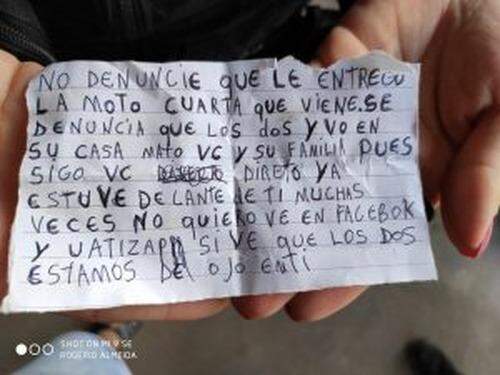 NO DENUNCIE QUE LE ENTREGO
LA MOTO CUARTA QUE VIENE.SE
DENUNCIA QUE LOS DOS Y VO EN
SU CASA MATO VC Y SU FAMILIA PUES
SIGO VC DIRETO YA
ESTUVE DELANTE DE TI MUCHAS
VECES NO QUIERO VE EN FACEBOK
Y UATIZAPP SI VE QUE LOS DOS
ESTAMOS DEL OJO ENTI
SHOT ON MI 9 SE
ROGERIO ALMEIDA